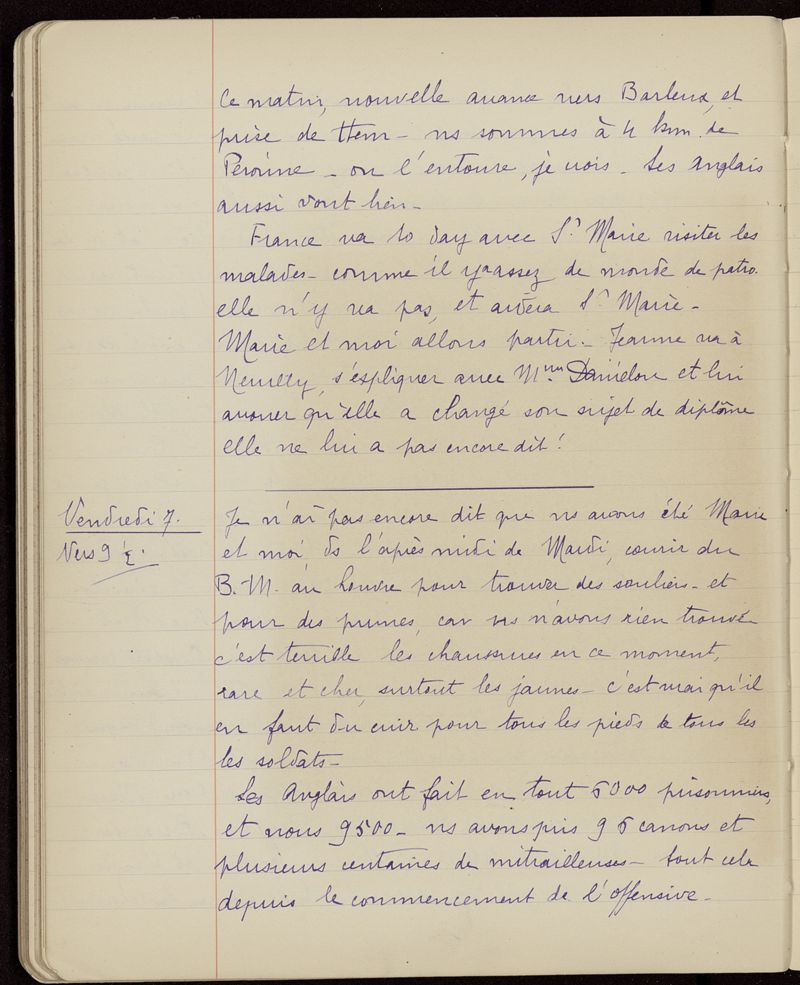 Ce matin, nouvelle avance vers Barleux, et
prise de Hem - ns sommes à 4 km. de
Péronne - on l'entoure, je crois - Les Anglais
aussi vont bien -
France va to day avec Sr Marie visiter les
malades - comme il y a assez de monde de patro.
elle n'y va pas, et aidera Sr Marie -
Marie et moi allons partir. Jeanne va à
Neuilly, s'expliquer avec Mme Daniélou et lui
avouer qu'elle a changé son sujet de diplôme
elle ne lui a pas encore dit !
Vendredi 7.
Vers 9 ½.
Je n'ai pas encore dit que ns avons été Marie
et moi ds l'après midi de Mardi, courir du
B.M. au Louvre pour trouver des souliers - et
pour des prunes, car ns n'avons rien trouvé
c'est terrible les chaussures en ce moment,
rare et cher, surtout les jaunes - c'est vrai qu'il
en faut du cuir pour tous les pieds de tous les
les soldats -
Les Anglais ont fait en tout 6000 prisonniers,
et nous 9500 - ns avons pris 96 canons et
plusieurs centaines de mitrailleuses - tout cela
depuis le commencement de l'offensive -